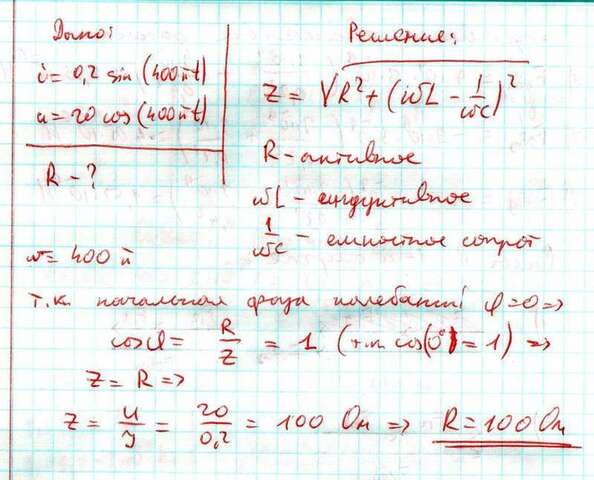 Дано:
i = 0,2 sin (400πt)
u = 20 cos (400πt)
R - ?
ω = 400 π
Решение:
Z = √R² + (ωL - 1/ωC)²
R - активное
ωL - индуктивное
1/ωC - емкостное сопрот
т.к. начальная фаза колебаний φ = 0 =>
cosφ = R/Z = 1 (т.к cos(0°) = 1) =>
Z = R =>
Z = U/I = 20/0,2 = 100 Ом => R = 100 Ом